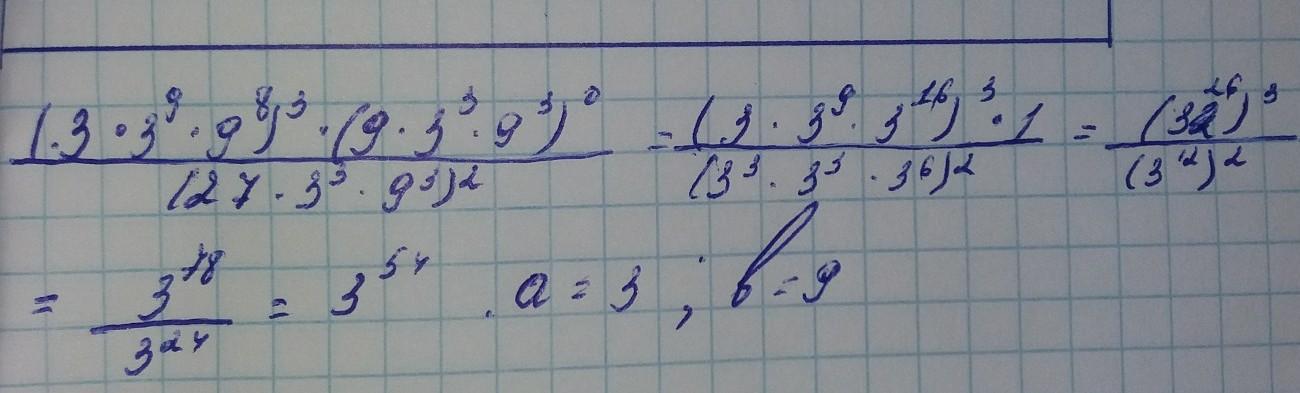 (.3·3⁹·9⁸)³·(9·3³·9³)⁰/(27·3³·9³)² = (3·3⁹·3¹⁶)³·1/(3³·3³·3⁶)² = (3²⁶)³/(3¹²)²
= 3⁷⁸/3²⁴ = 3⁵⁴ . a = 3 ; b = 9